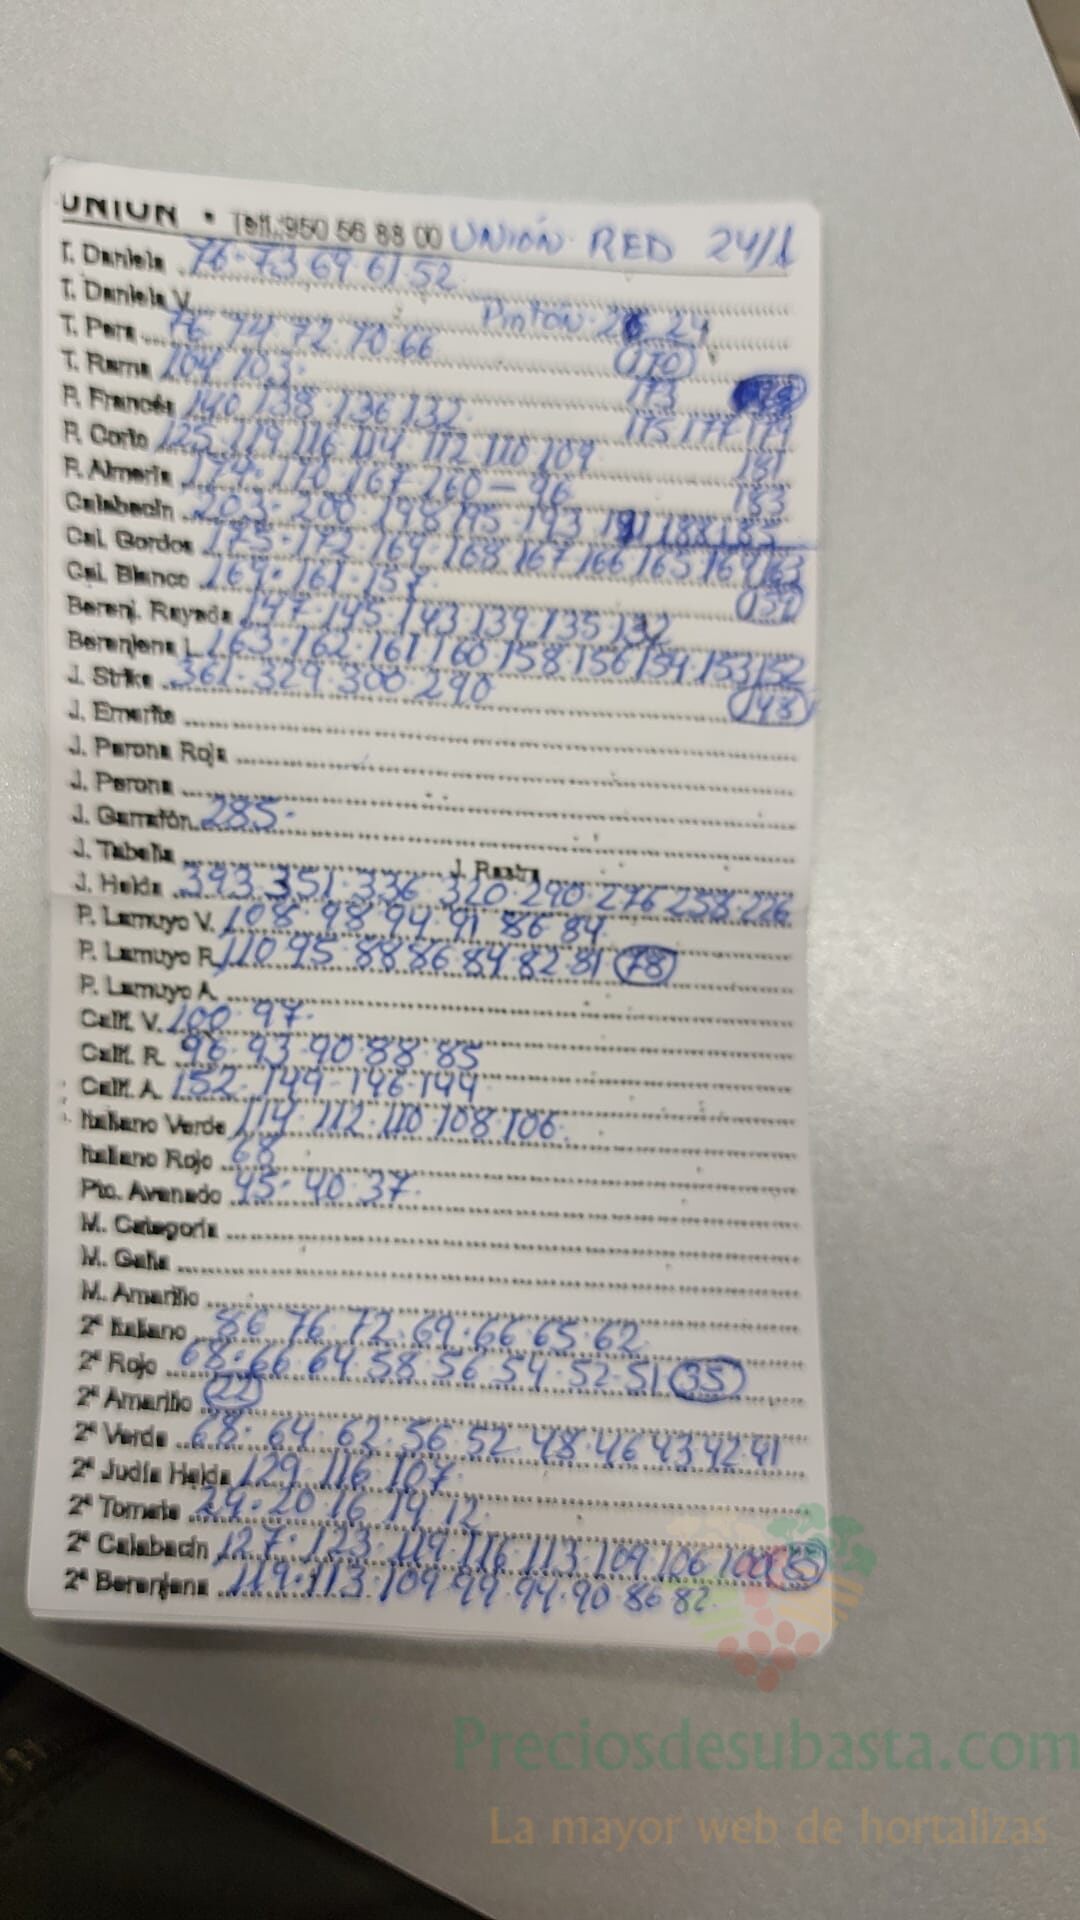 UNION • Telf. 950 56 88 00 UNIÓN RED 24/1
T. Daniela 76 · 73 69 · 61 52
T. Daniela V. Pintón 24
T. Pera 76 74 72 70 66 (170)
T. Rama 104 103 · 173
P. Francés 140 138 · 136 132 · 175 177 179
P. Corto 125 119 116 114 112 110 109 181
P. Almería 174 · 170 167 160 — 96 183
Calabacín 203 · 200 · 198 195 · 193 191 188 185
Cal. Gordos 175 · 172 · 169 · 168 167 166 165 164 163
Cal. Blanco 169 · 161 · 157 (157)
Berenj. Rayada 147 · 145 143 139 135 · 132
Berenjena L. 163 · 162 · 161 160 158 · 156 154 153 152
J. Strike 361 · 329 · 300 · 290 (148)
J. Emerite
J. Perona Roja
J. Perona
J. Garrafón 285 ·
J. Tabella J. Rastra
J. Helda 393 351 · 336 320 · 290 · 276 258 · 226
P. Lamuyo V. 108 · 98 94 91 86 84
P. Lamuyo R. 110 95 · 88 86 84 82 81 (78)
P. Lamuyo A.
Calif. V. 100 · 97 ·
Calif. R. 96 · 93 · 90 · 88 · 85
Calif. A. 152 · 149 · 146 · 144
Italiano Verde 114 · 112 · 110 · 108 · 106 ·
Italiano Rojo 68
Pto. Asurcado 45 · 40 · 37 ·
M. Categoría
M. Galia
M. Amarillo
2ª Italiano 86 76 72 · 69 · 66 65 · 62
2ª Rojo 68 · 66 64 58 · 56 54 · 52 · 51 (35)
2ª Amarillo (22)
2ª Verde 68 · 64 · 62 · 56 52 · 48 · 46 43 42 · 41
2ª Judía Helda 129 · 116 · 107
2ª Tomate 24 · 20 16 · 14 · 12
2ª Calabacín 127 · 123 · 119 · 116 · 113 · 109 106 · 100 (85)
2ª Berenjena 119 · 113 · 109 99 94 · 90 86 82
Preciosdesubasta.com
La mayor web de hortalizas